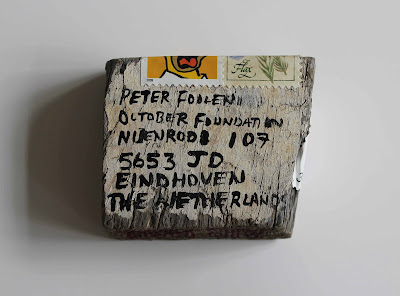 Flax
PETER FOOLEN
OCTOBER FOUNDATION
NIJENRODE 107
5653 JD
EINDHOVEN
THE NETHERLANDS